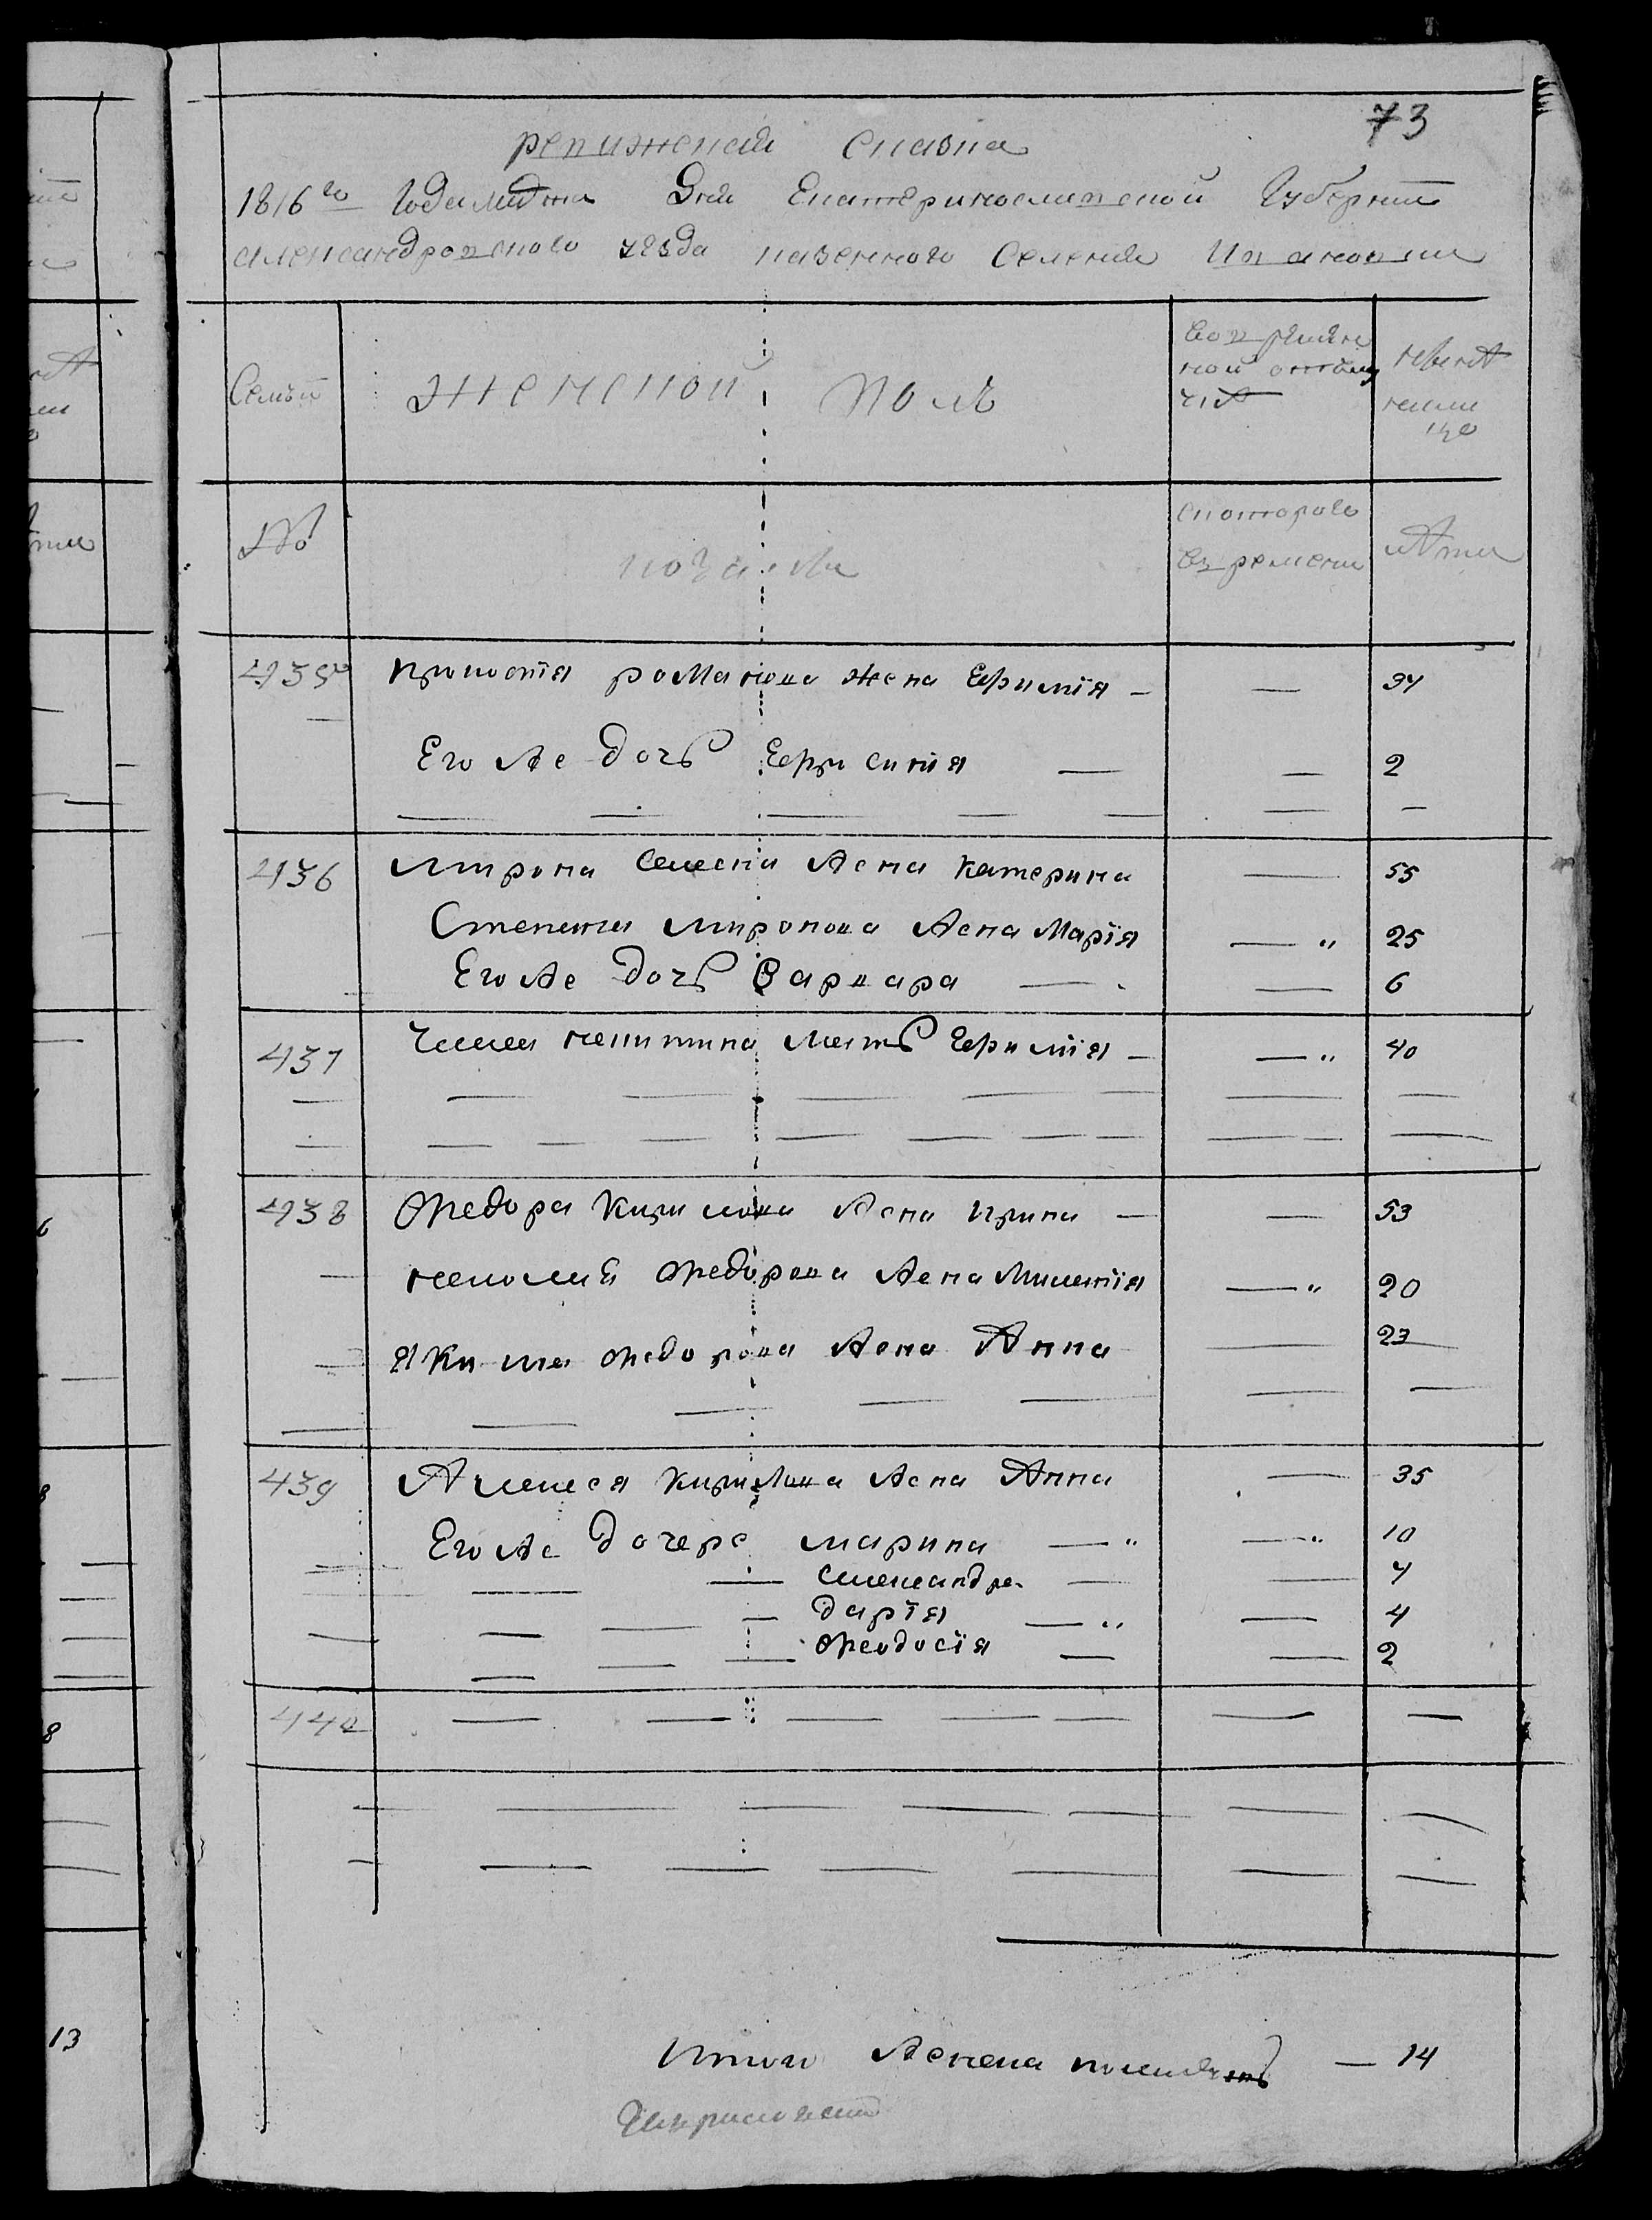 73
ревижская сказка
1816го Года Дня Екатеринославской Губернии
александровского уезда казенного Селения Ивановки
Семьи
женской пол
вовремян
ной отлу
чке
ныне
нали
цо
№
скоторого
времени
лета
435
Прокофія романова жена Ефимія — — 34
Его же дочь Ефросинія — — 2
436
Мирона жена катерина — 55
Степана миронова жена Марія — " 25
Его же дочь Варвара — — 6
437
никитина мать Ефимія — — " 40
438
Федора Кирилова жена Ирина — — 53
Федорова жена — " 20
Якима федорова жена Анна — 23
439
Алексея Кирилова жена Анна — 35
Его же дочере марина — " — " 10
александра — — 7
дарія — " — 4
феодосія — — 2
440
Итого женска — 14